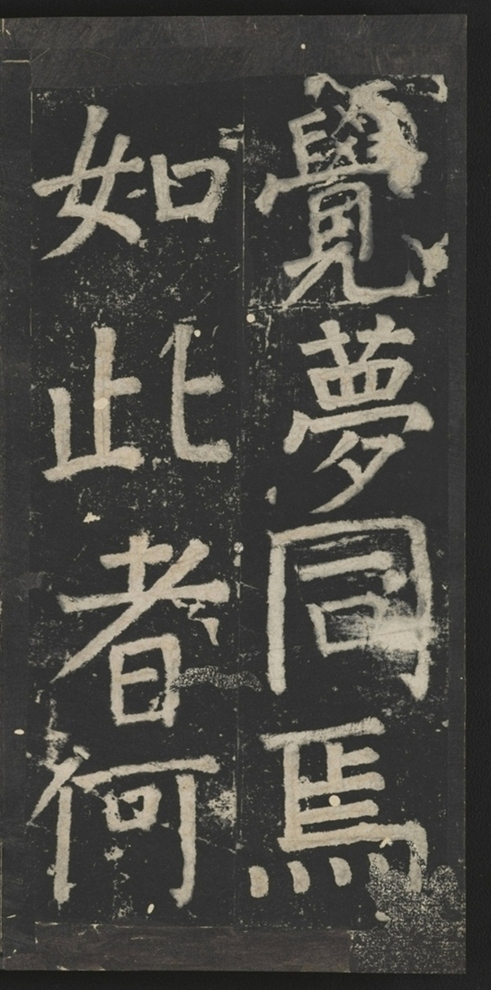 覺夢同焉
如此者何